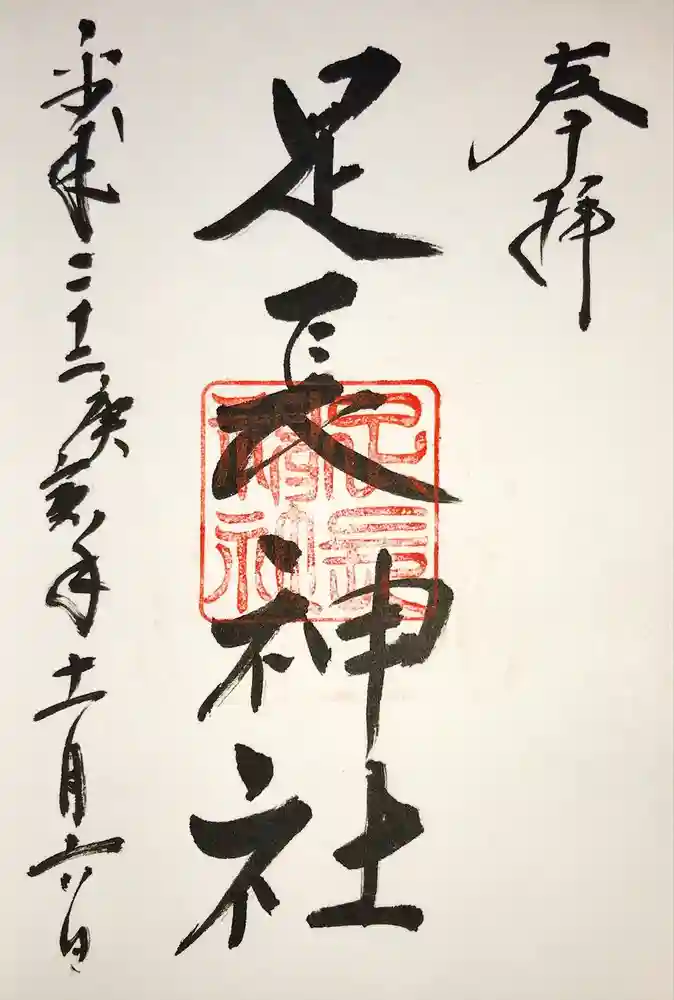 奉拝
足長神社
平成二十二庚寅年十一月六日